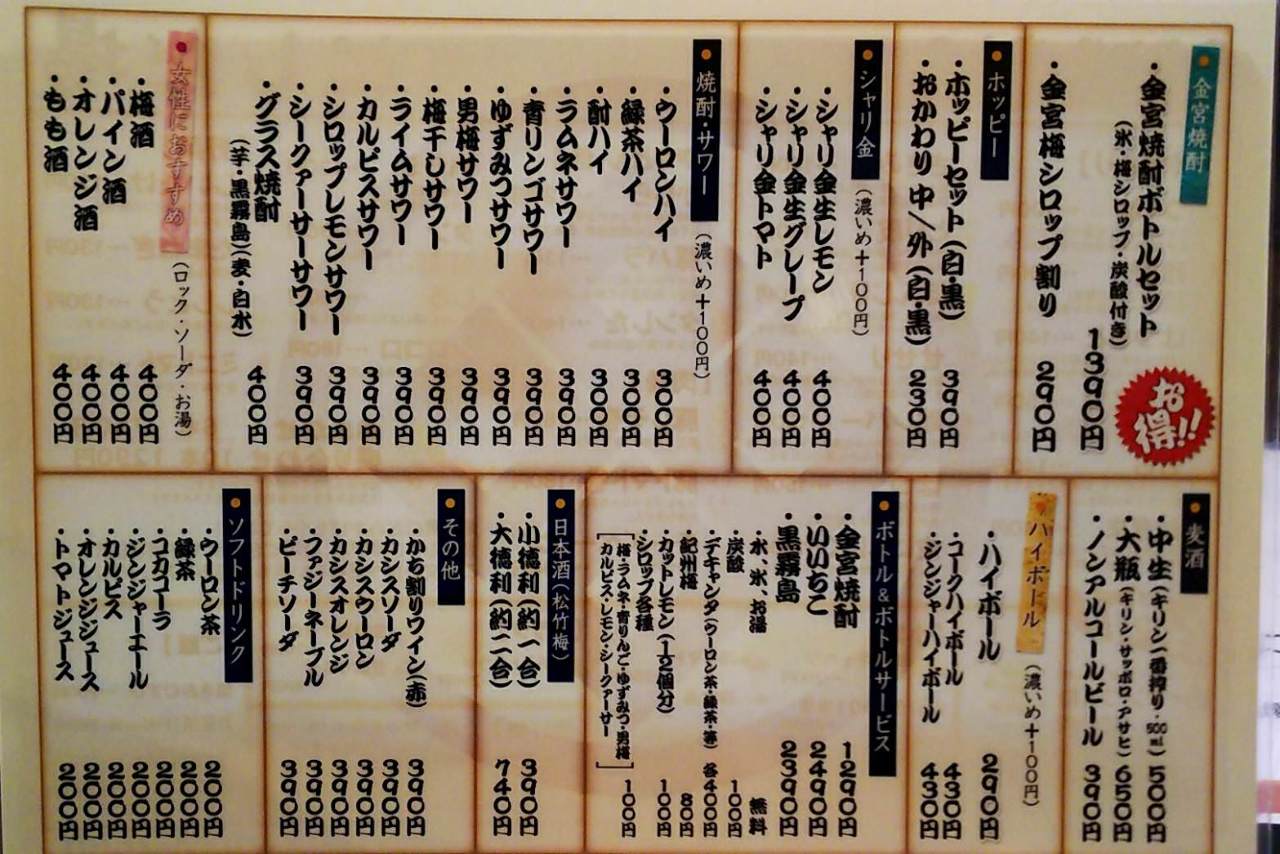 金宮焼酎
・金宮焼酎ボトルセット
(氷・梅シロップ・炭酸付き)
1390円
お得!!
・金宮梅シロップ割り 290円
ホッピー
・ホッピーセット(白・黒) 390円
・おかわり 中/外(白・黒) 230円
シャリ金(濃いめ+100円)
・シャリ金生レモン 400円
・シャリ金生グレープ 400円
・シャリ金トマト 400円
焼酎・サワー(濃いめ+100円)
・ウーロンハイ 300円
・緑茶ハイ 300円
・酎ハイ 300円
・ラムネサワー 390円
・青リンゴサワー 390円
・ゆずみつサワー 390円
・男梅サワー 390円
・梅干しサワー 390円
・ライムサワー 390円
・カルピスサワー 390円
・シロップレモンサワー 390円
・シークァーサーサワー 390円
・グラス焼酎 400円
(芋・黒霧島)(麦・白水)
女性におすすめ(ロック・ソーダ・お湯)
・梅酒 400円
・パイン酒 400円
・オレンジ酒 400円
・もも酒 400円
麦酒
・中生(キリン一番搾り・500ml) 500円
・大瓶(キリン・サッポロ・アサヒ) 650円
・ノンアルコールビール 390円
ハイボール(濃いめ+100円)
・ハイボール 290円
・コークハイボール 430円
・ジンジャーハイボール 430円
ボトル&ボトルサービス
・金宮焼酎 1290円
・いいちこ 2490円
・黒霧島 2390円
・水、氷、お湯 無料
・炭酸 100円
・デキャンタ(ウーロン茶・緑茶・等) 各400円
・紀州梅 80円
・カットレモン(1/2個分) 100円
・シロップ各種 100円
[梅・ラムネ・青りんご・ゆずみつ・男梅
カルピス・レモン・シークァーサー]
日本酒(松竹梅)
・小徳利(約一合) 390円
・大徳利(約二合) 740円
その他
・かち割りワイン(赤) 390円
・カシスソーダ 390円
・カシスウーロン 390円
・カシスオレンジ 390円
・ファジーネーブル 390円
・ピーチソーダ 390円
ソフトドリンク
・ウーロン茶 200円
・緑茶 200円
・コカコーラ 200円
・ジンジャーエール 200円
・カルピス 200円
・オレンジジュース 200円
・トマトジュース 200円